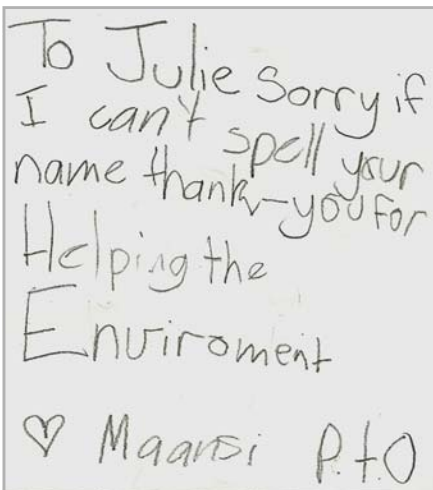 To Julie Sorry if
I can't spell your
name thank-you for
Helping the
Enviroment
♡ Maansi P.t.O